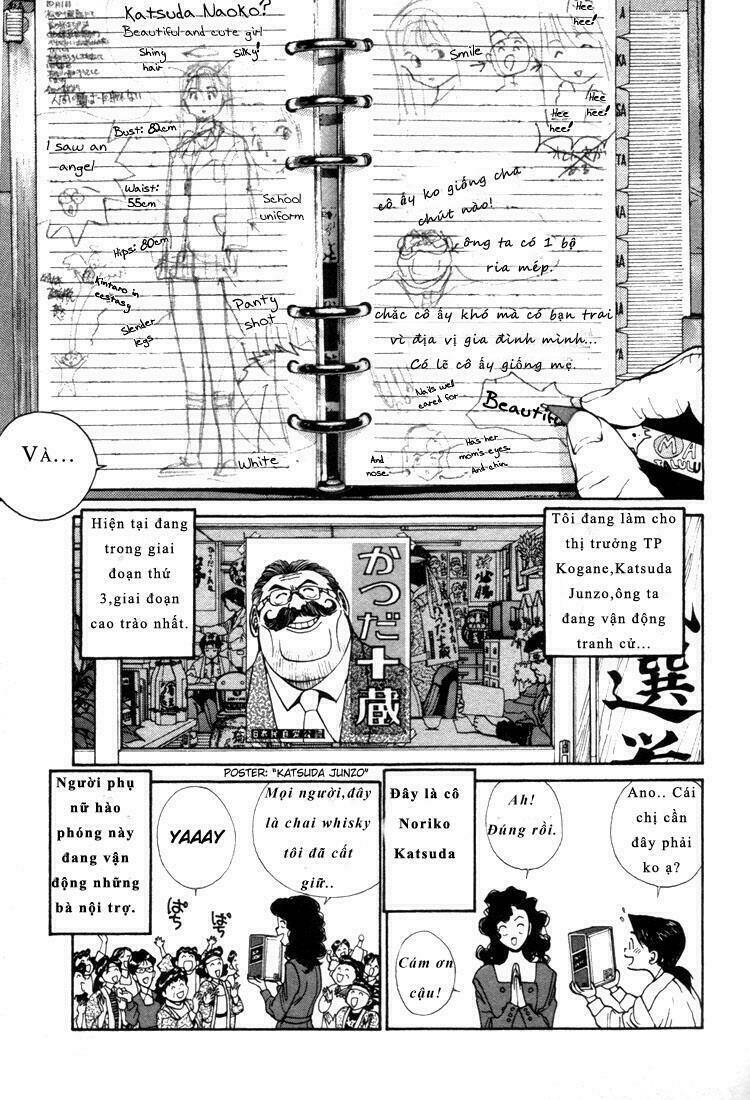 Katsuda Naoko?
Beautiful and cute girl
Shiny
hair
Silky!
Bust: 82cm
I saw an
angel
Waist:
55cm
School
uniform
Hips: 80cm
Kintaro in
ecstasy
Slender
legs
Panty
shot
White
Smile
Hee
hee!
Hee
hee!
Hee
hee!
A
KA
SA
TA
NA
cô ấy ko giống cha
chút nào!
ông ta có 1 bộ
ria mép.
chắc cô ấy khó mà có bạn trai
vì địa vị gia đình mình...
Có lẽ cô ấy giống mẹ.
Nails well
cared for
Beautifu
And
nose.
Has her
mom's eyes.
And chin.
Và...
Tôi đang làm cho
thị trưởng TP
Kogane,Katsuda
Junzo,ông ta
đang vận động
tranh cử...
Hiện tại đang
trong giai
đoạn thứ
3,giai đoạn
cao trào nhất.
かつだ十蔵
選挙
POSTER: "KATSUDA JUNZO"
Ano.. Cái
chị cần
đây phải
ko ạ?
Ah!
Đúng rồi.
Đây là cô
Noriko
Katsuda
Cám ơn
cậu!
Mọi người,đây
là chai whisky
tôi đã cất
giữ..
YAAAY
Người phụ
nữ hào
phóng này
đang vận
động những
bà nội trợ.
ぱち
ぱち